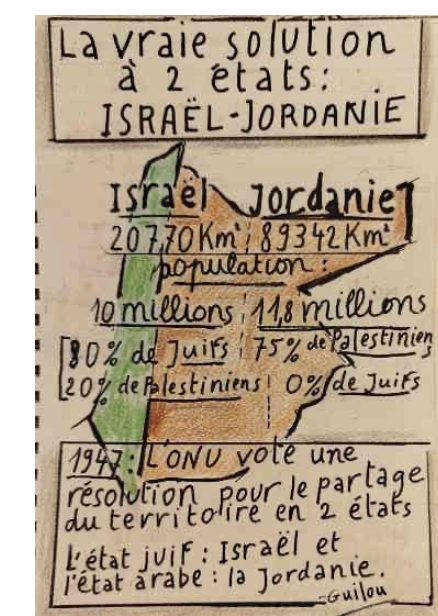 La vraie solution
à 2 états:
ISRAËL-JORDANIE
Israël Jordanie
20770 Km² 89342 Km²
population :
10 millions 11,8 millions
80% de Juifs 75% de Palestiniens
20% de Palestiniens 0% de Juifs
1947: L'ONU vote une
résolution pour le partage
du territoire en 2 états
L'état juif : Israël et
l'état arabe : la Jordanie.
-Guilou